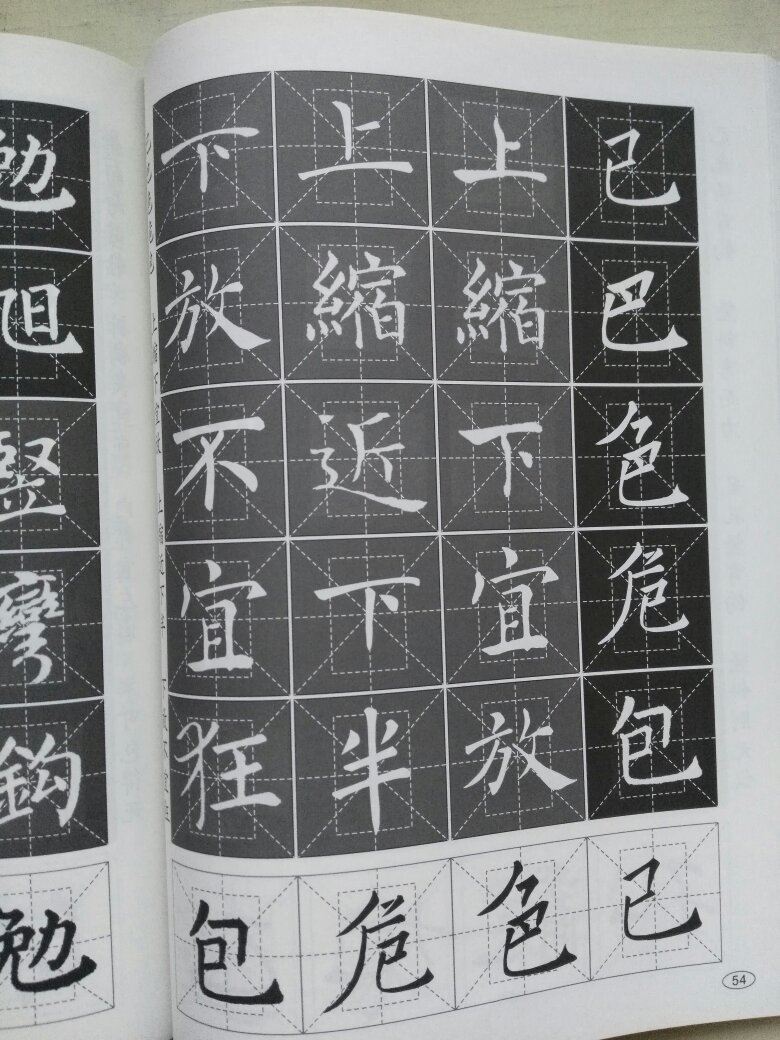 已巴色危包
上縮下宜放
上縮近下半
下放不宜狂
已色危包
54
勉
旭
豎
彎
鈎
勉